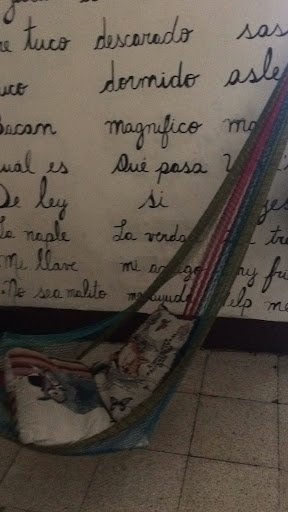 tuco descarado sas
dormido asle
Bacan magnifico
es Qué pasa
De ley si yes
La naple La verdad
Me llave mi amigo my
No sea malito me ayuda help me